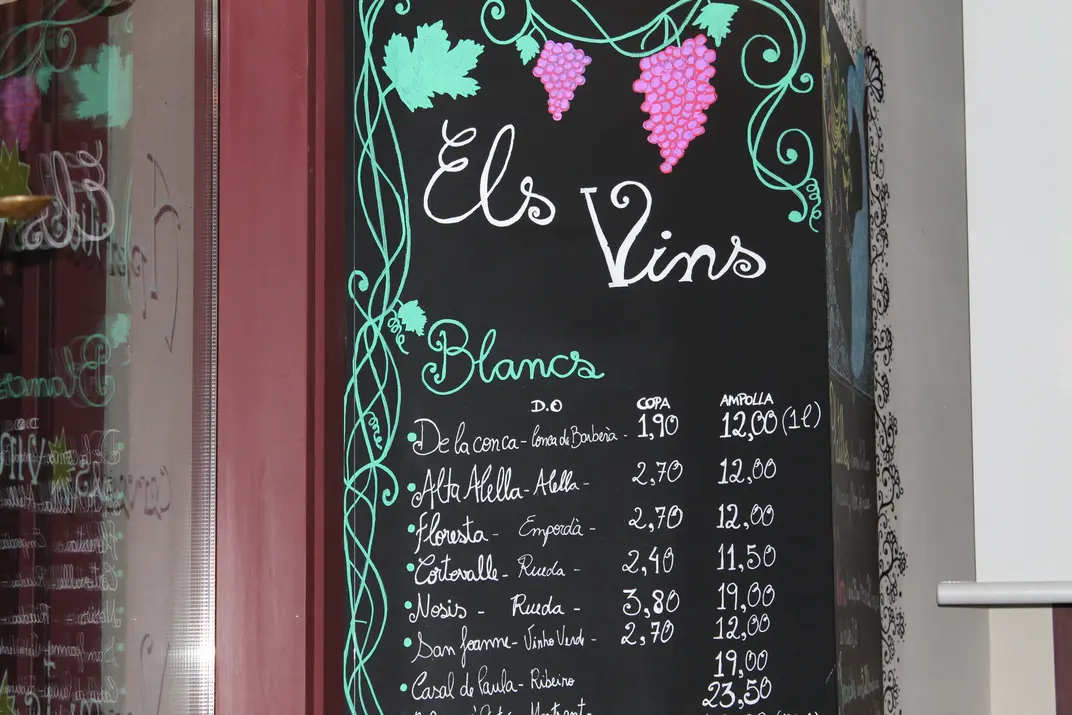 Els
Vins
Blancs
D.O COPA AMPOLLA
De la conca - Conca de Barberà - 1,90 12,00 (1l)
Alta Alella - Alella - 2,70 12,00
Floresta - Empordà - 2,70 12,00
Cortevalle - Rueda - 2,40 11,50
Nosis - Rueda - 3,80 19,00
San Joanne - Vinho Verde - 2,70 12,00
Casal de Paula - Ribeiro 19,00
23,50